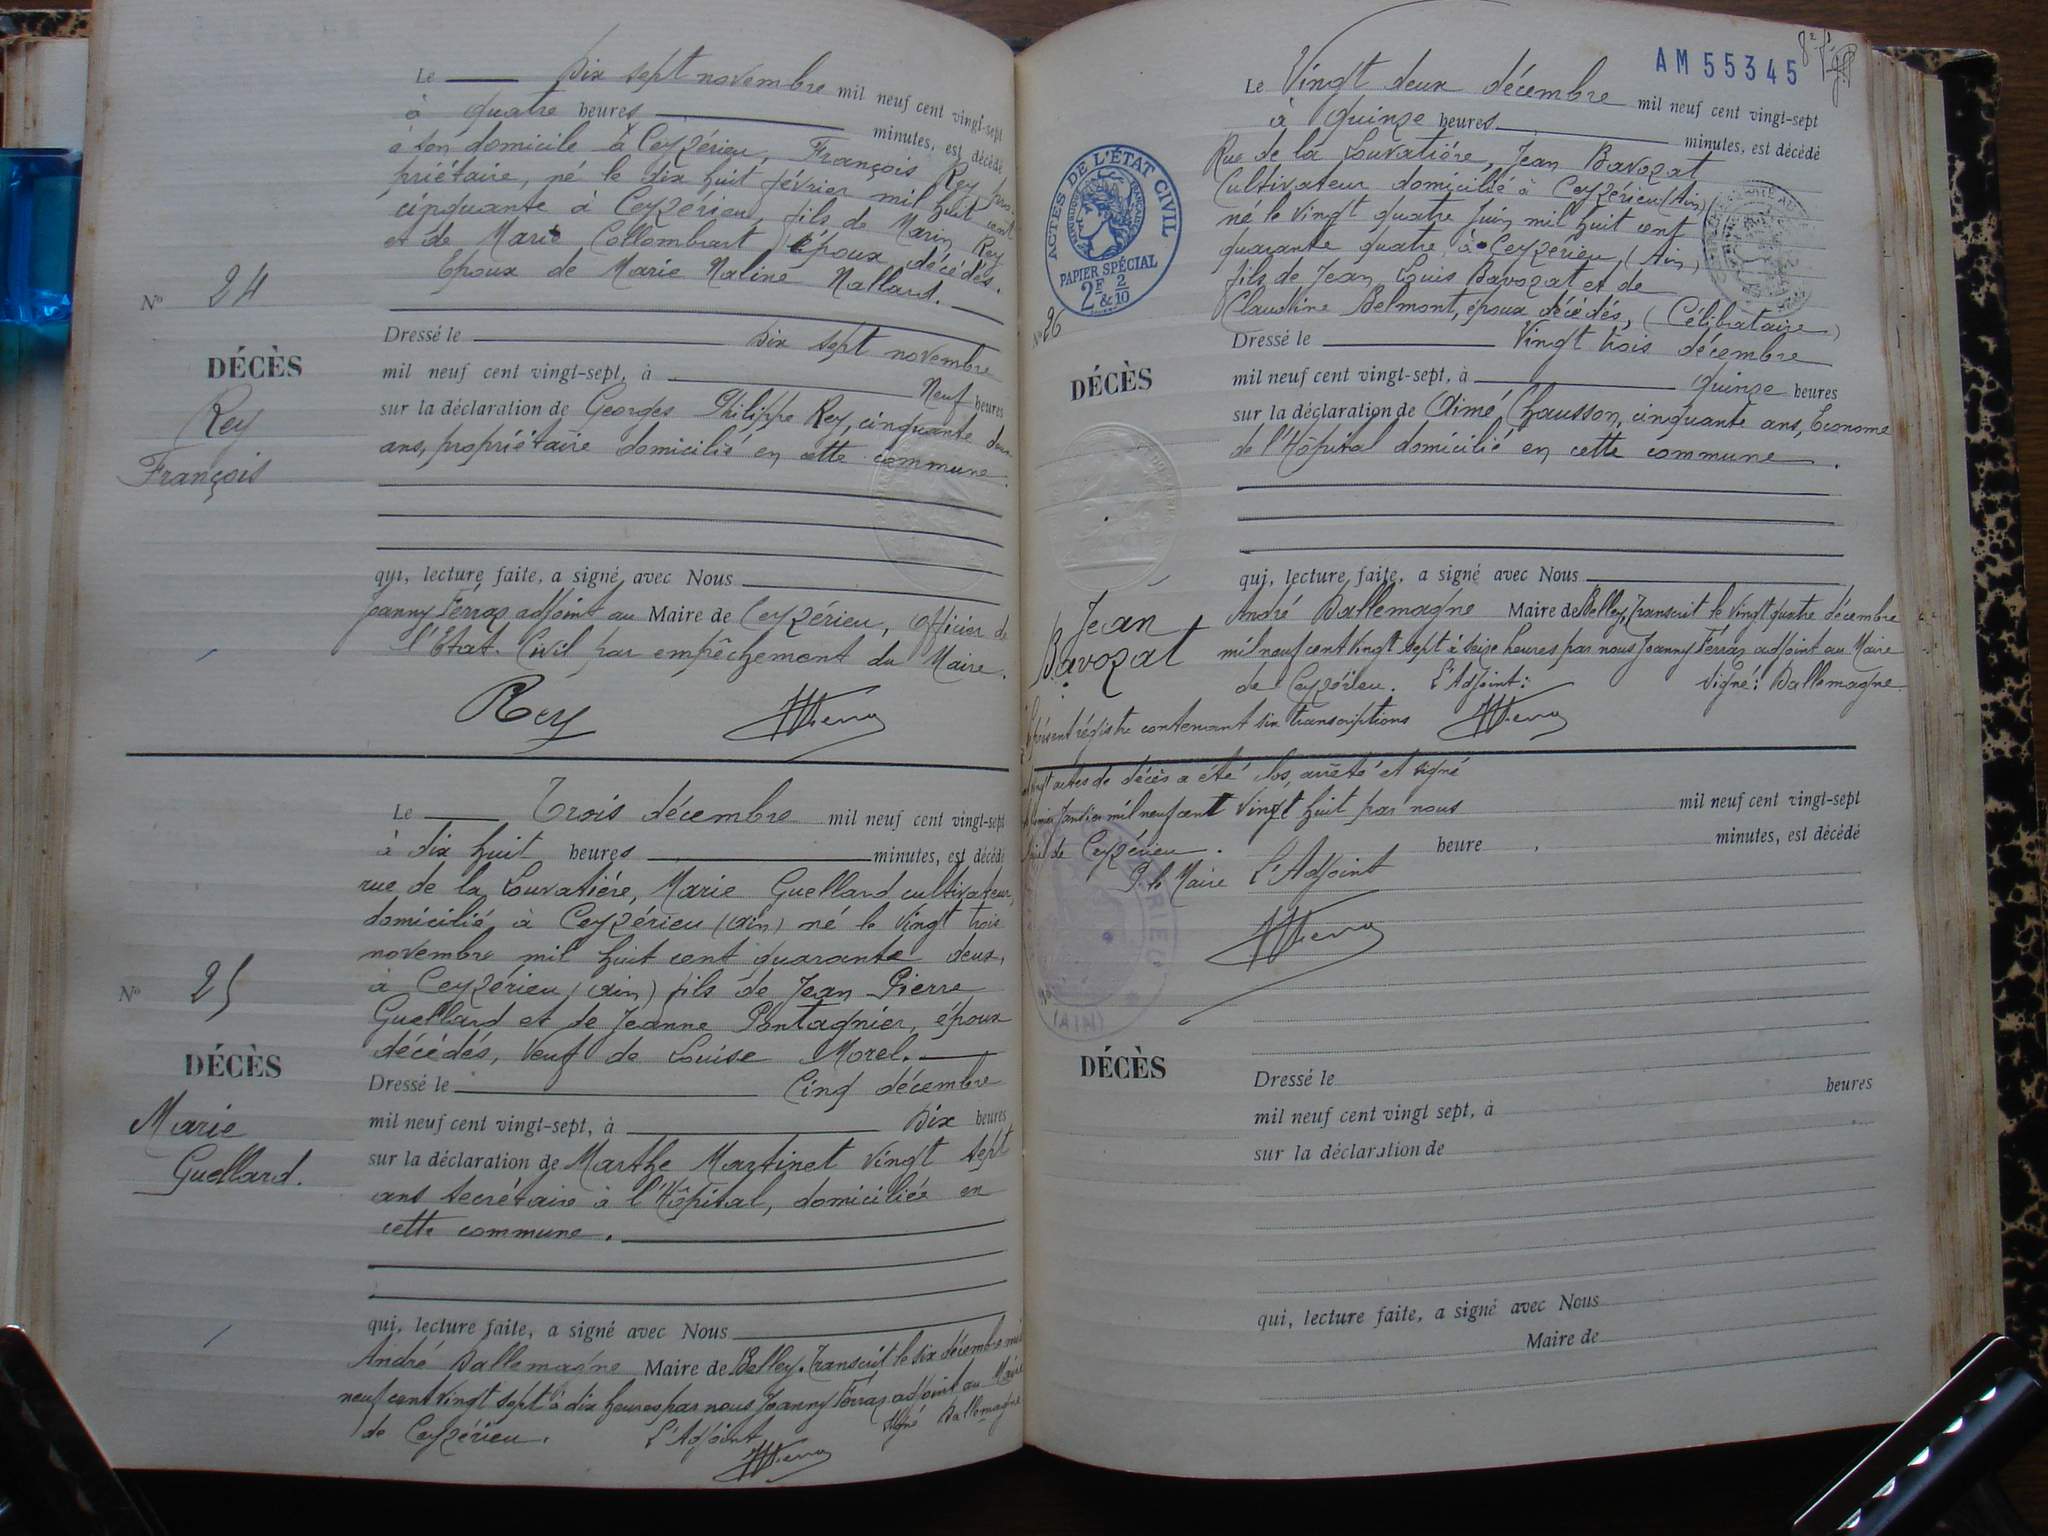 Le Dix sept novembre mil neuf cent vingt-sept
à quatre heures minutes, est décédé
à son domicile à Ceyzérieu, François Rey pro-
priétaire, né le dix huit février mil huit cent
cinquante à Ceyzérieu, fils de Marin Rey
et de Marie Collombart, époux décédés.
Epoux de Marie Naline Nallard.
N° 24
DÉCÈS
Rey
François
Dressé le Dix sept novembre
mil neuf cent vingt-sept, à Neuf heures
sur la déclaration de Georges Philippe Rey, cinquante deux
ans, propriétaire domicilié en cette commune.
qui, lecture faite, a signé avec Nous
Joanny Férraz adjoint au Maire de Ceyzérieu, officier de
l'Etat-Civil par empêchement du Maire.
Rey
Le Trois décembre mil neuf cent vingt-sept
à dix huit heures minutes, est décédé
rue de la Louvatière, Marie Guellard cultivateur,
domicilié à Ceyzérieu (Ain) né le vingt trois
novembre mil huit cent quarante deux,
à Ceyzérieu (Ain) fils de Jean Pierre
Guellard et de Jeanne Pontagnier, époux
décédés, veuf de Louise Morel.
N° 25
DÉCÈS
Marie
Guellard.
Dressé le Cinq décembre
mil neuf cent vingt-sept, à Dix heures
sur la déclaration de Marthe Martinet vingt sept
ans secrétaire à l'Hôpital, domiciliée en
cette commune.
qui, lecture faite, a signé avec Nous
André Dallemagne Maire de Belley. Transcrit le six décembre mil
neuf cent vingt sept à dix heures par nous Joanny Férraz adjoint au Maire
de Ceyzérieu. L'Adjoint signé Dallemagne
AM 55345
Le Vingt deux décembre mil neuf cent vingt-sept
à quinze heures minutes, est décédé
Rue de la Louvatière, Jean Bavozat
Cultivateur domicilié à Ceyzérieu (Ain)
né le vingt quatre juin mil huit cent
quarante quatre à Ceyzérieu, (Ain)
fils de Jean Louis Bavozat et de
Claudine Belmont, époux décédés, (Célibataire)
ACTES DE L'ÉTAT CIVIL
RÉPUBLIQUE FRANÇAISE
PAPIER SPÉCIAL
2F & 2/10
N° 26
DÉCÈS
Jean
Bavozat
Dressé le Vingt trois décembre
mil neuf cent vingt-sept, à quinze heures
sur la déclaration de Aimé Chausson, cinquante ans, Econome
de l'Hôpital domicilié en cette commune.
qui, lecture faite, a signé avec Nous
André Dallemagne Maire de Belley, Transcrit le vingt quatre décembre
mil neuf cent vingt sept à seize heures par nous Joanny Férraz adjoint au Maire
de Ceyzérieu. L'Adjoint: signé: Dallemagne
présent régistre contenant six transcriptions
et vingt actes de décès a été clos, arrêté et signé
premier Janvier mil neuf cent vingt huit par nous
de Ceyzérieu.
P. le Maire L'Adjoint
(AIN)
mil neuf cent vingt-sept
heure minutes, est décédé
DÉCÈS
Dressé le
mil neuf cent vingt sept, à heures
sur la déclaration de
qui, lecture faite, a signé avec Nous
Maire de